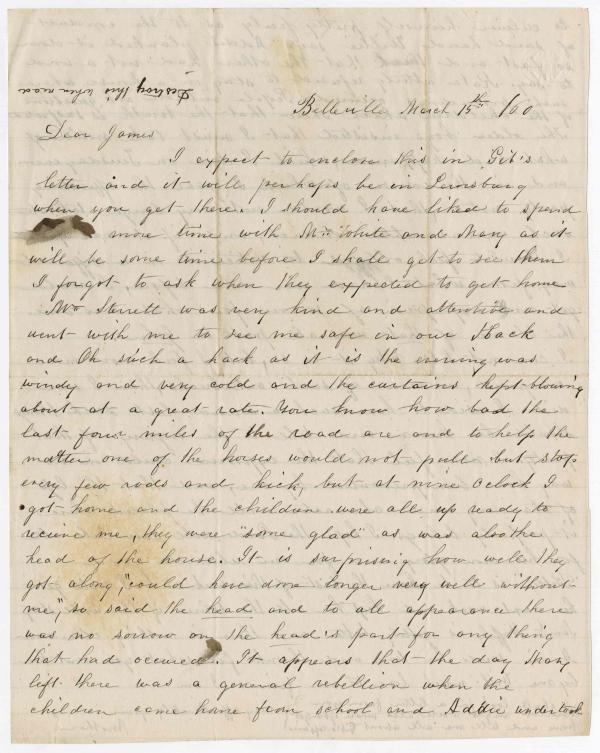 Destroy this when read
Belleville March 15th /60
Dear James
I expect to enclose this in Gib's
letter and it will perhaps be in Lewisburg
when you get there. I should have liked to spend
more time with Mrs White and Mary as it
will be some time before I shall get to see them
I forgot to ask when they expected to get home
Mr Sterrett was very kind and attentive and
went with me to see me safe in our Hack
and Oh such a hack, as it is the evening was
windy and very cold and the curtains kept blowing
about at a great rate. You know how bad the
last four miles of the road are and to help the
matter one of the horses would not pull but stop
every few rods and kick, but at nine Oclock I
got home and the children were all up ready to
receive me, they were "some glad" as was also the
head of the house. It is surprising how well they
got along, "could have done longer very well without
me", so said the head and to all appearance there
was no sorrow on the head's part for any thing
that had occured. It appears that the day Mary
left there was a general rebellion when the
children came home from school and Addie undertook